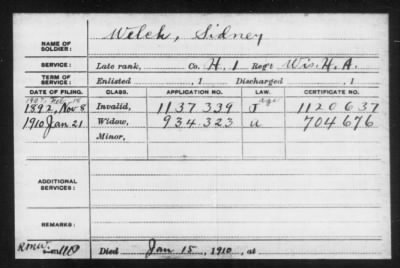 Welch, Sidney
NAME OF SOLDIER:
SERVICE: Late rank, Co. H, 1 Reg't Wis. H. A.
TERM OF SERVICE: Enlisted , 1 Discharged , 1
DATE OF FILING. CLASS. APPLICATION NO. LAW. CERTIFICATE NO.
1907, Feb. 18 age
1892, Nov 8 Invalid, 1137339 J 1120637
1910 Jan 21 Widow, 934.323 u 704676
Minor,
ADDITIONAL SERVICES:
REMARKS:
Died Jan 15, 1910, at